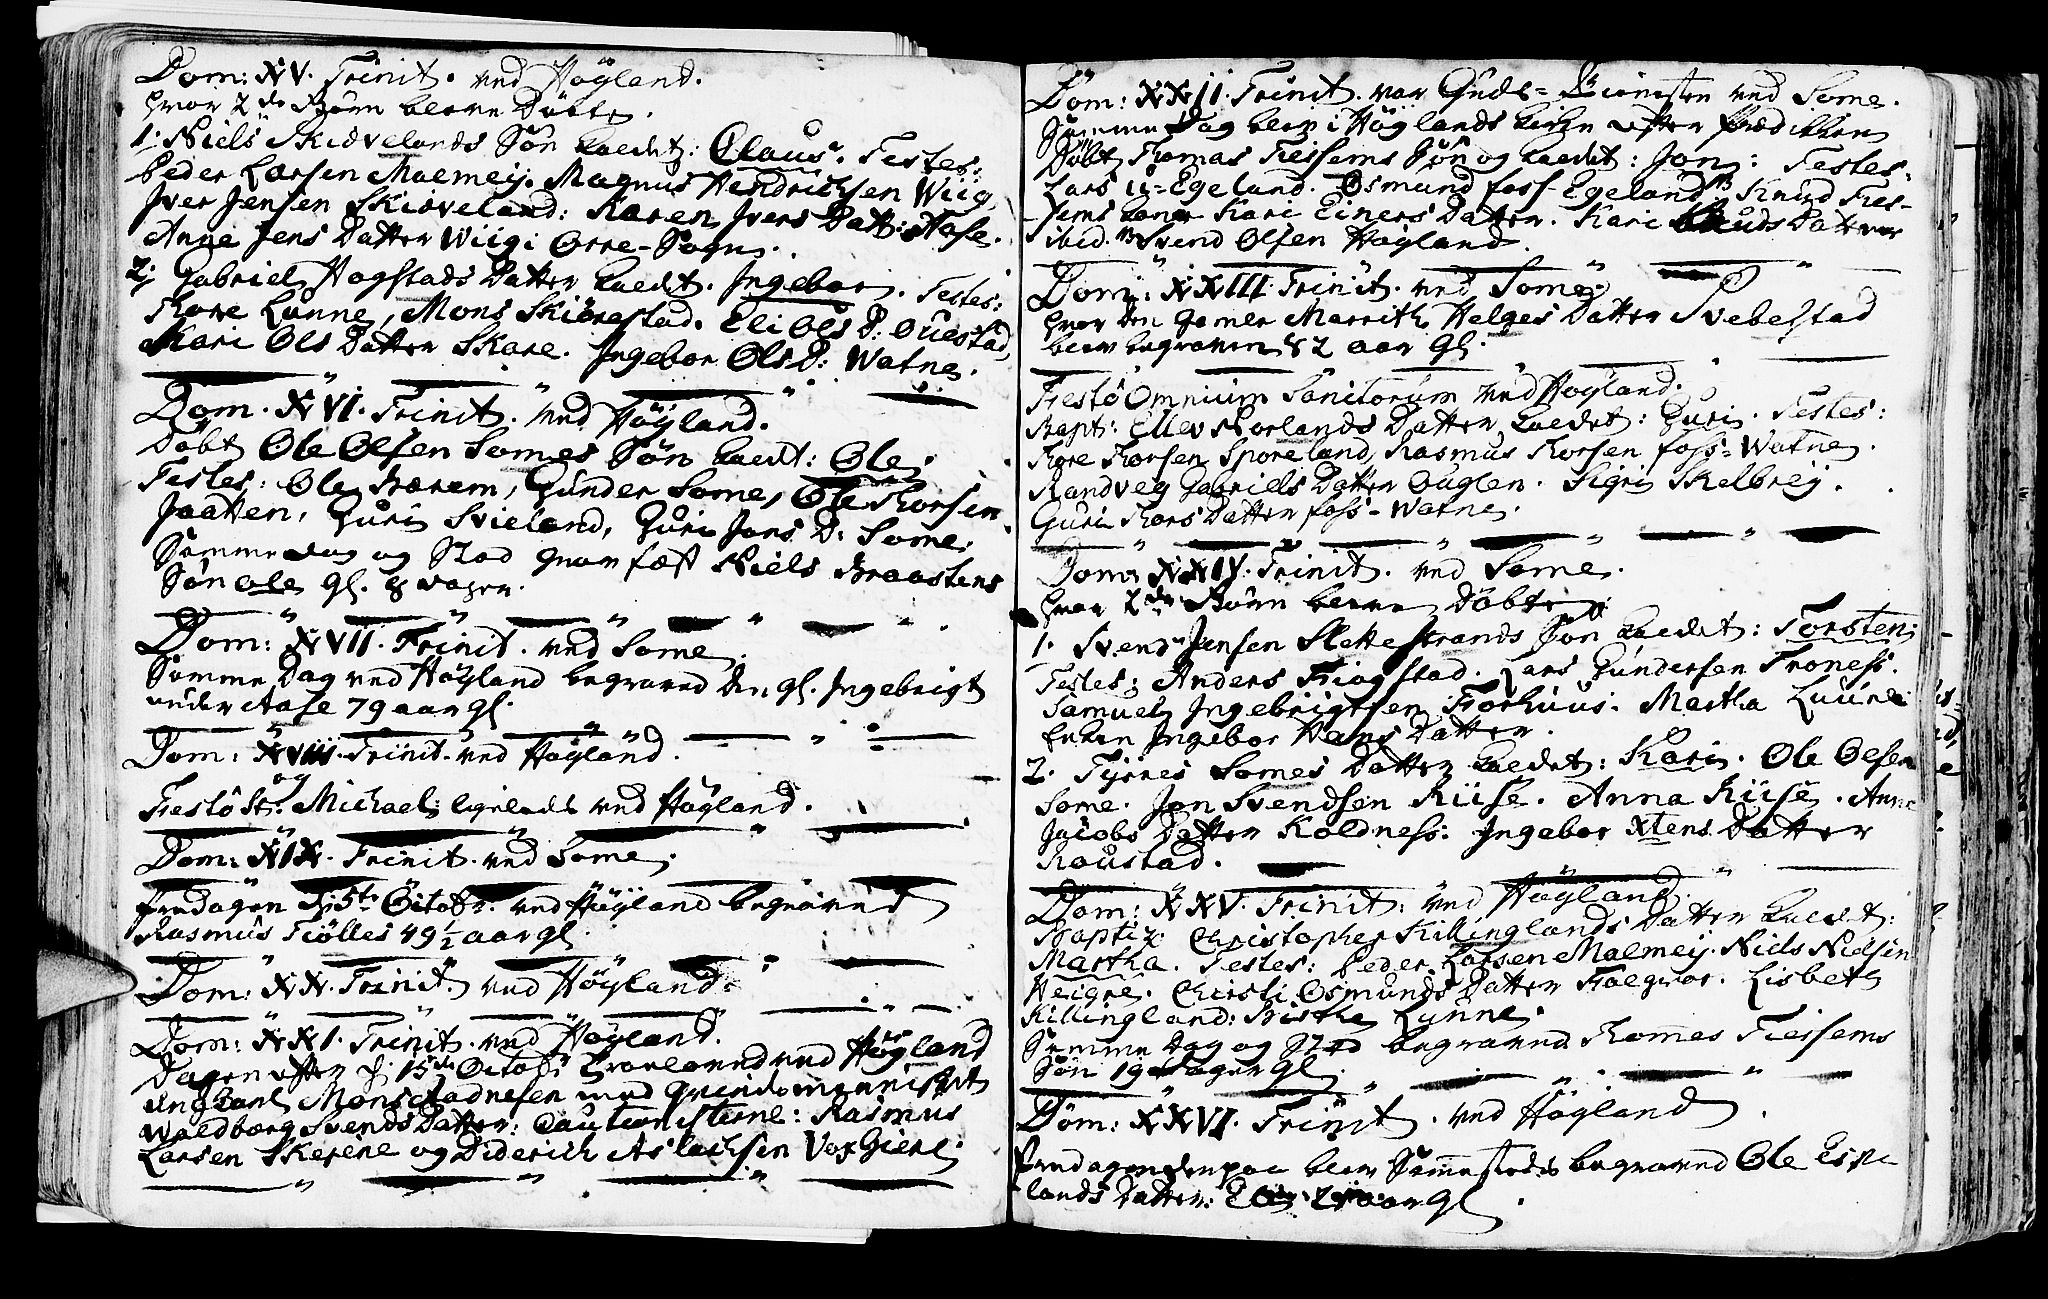 Dom: XV. Trinit. ved Høyland.
hvor 2de Børn bleve Døbte.
1. Niels Skievelands Søn kaldet: Claus. Testes:
Peder Larsen Malmeij. Magnus Hendrichsen Wiig
Iver Jensen Skieveland: Karen Ivers Datt: Aase.
Ange Jens Datter Wiig i Orre-Sogn.
2. Gabriel Hogstads Datter kaldet. Ingebor. Testes:
Tore Lunne, Mons Skiørestad. Eli Ols D: Ouestad,
Kari Ols Datter Skare. Ingebor Ols D: Watne.
Dom. XVI. Trinit. ved Høyland.
Døbt Ole Olsen Somes Søn kaldt: Ole.
Testes: Ole Bærem, Gunder Some, Ole Thorsen
Jaatten, Guri Svieland, Guri Jons D: Some.
Samme dag og Stad Niels Braastens
Søn Ole gl. 8 dager.
Dom: XVII. Trinit. ved Some.
Samme Dag ved Høyland begraved den gl. Ingebrigt
under Aase 79 aar gl.
Dom: XVIII. Trinit. ved Høyland.
og
Festo St. Michael: ligeledes ved Høyland.
Dom: XIX. Trinit. ved Some.
Fredagen d. 5te Octobr. ved Høyland begraved
Rasmus Tiølles 49½ aar gl.
Dom: XX. Trinit. ved Høyland.
Dom: XXI. Trinit. ved Høyland.
Dagen efter d. 15de Octobr trolovved ved Høyland
ung Karl Mons Madnesen med Qvindemennisket
Waldborg Svends Datter: Cautionisterne: Rasmus
Larsen Skeiene og Diderich Aslachsen Vaxgiere.
Dom: XXII. Trinit. var Guds-Tienesten ved Some.
Samme Dag blev i Høylands Kirke efter prædikken
Døbt Thomas Tiessems Søn og kaldet: Jon: Testes.
Lars ii-Egeland. Osmund foss-Egeland, Knud Ties-
sems kone Kari Einers Datter. Kari Knuds Datter
ibid. Svend Olsen Høyland.
Dom: XXIII Trinit. ved Some.
hvor den gamle Marrith Helges Datter Svebestad
blev begraven 82 aar gl.
Festo Omnium Sanctorum ved Høyland.
Bapt: Ellev Norlands Datter kaldet: Guri. Testes:
Tore Thorsen Sporeland, Rasmus Thorsen foss-Watne.
Randveg Gabriels Datter Ouglen. Sigri Skelbreij.
Guri Thors Datter foss-Watne.
Dom: XXIV. Trinit. ved Some.
hvor 2de Børn bleve Døbte:
1. Svend Jensen Slettestrands Søn kaldet: Torsten:
Testes: Anders Tiogstad. Lars Gundersen Troness.
Samuel Ingebrigtsen Forhuus. Martha Luure
Enken Ingebor Hans Datter.
2. Tyeres Somes Datter kaldet: Kari. Ole Olsen
Some. Jon Svendsen Riise. Anna Riise. Anne
Jacobs Datter Koldness: Ingebor Xtens Datter
Roustad.
Dom: XXV. Trinit: ved Høyland.
Baptiz: Christopher Killinglands Datter kaldet:
Martha. Testes: Peder Larsen Malmeij. Niels Nielsen
Heigre. Christi Osmunds Datter Folgeroe. Lisbet
Killingland: Lunne.
Samme Dag og Stad begraved Thomas Tiessems
Søn 19 dager gl.
Dom: XXVI. Trinit. ved Høyland.
Fredagen derpaa blev Sammestedes begraved Ole Espe-
lands Datter: aar gl.